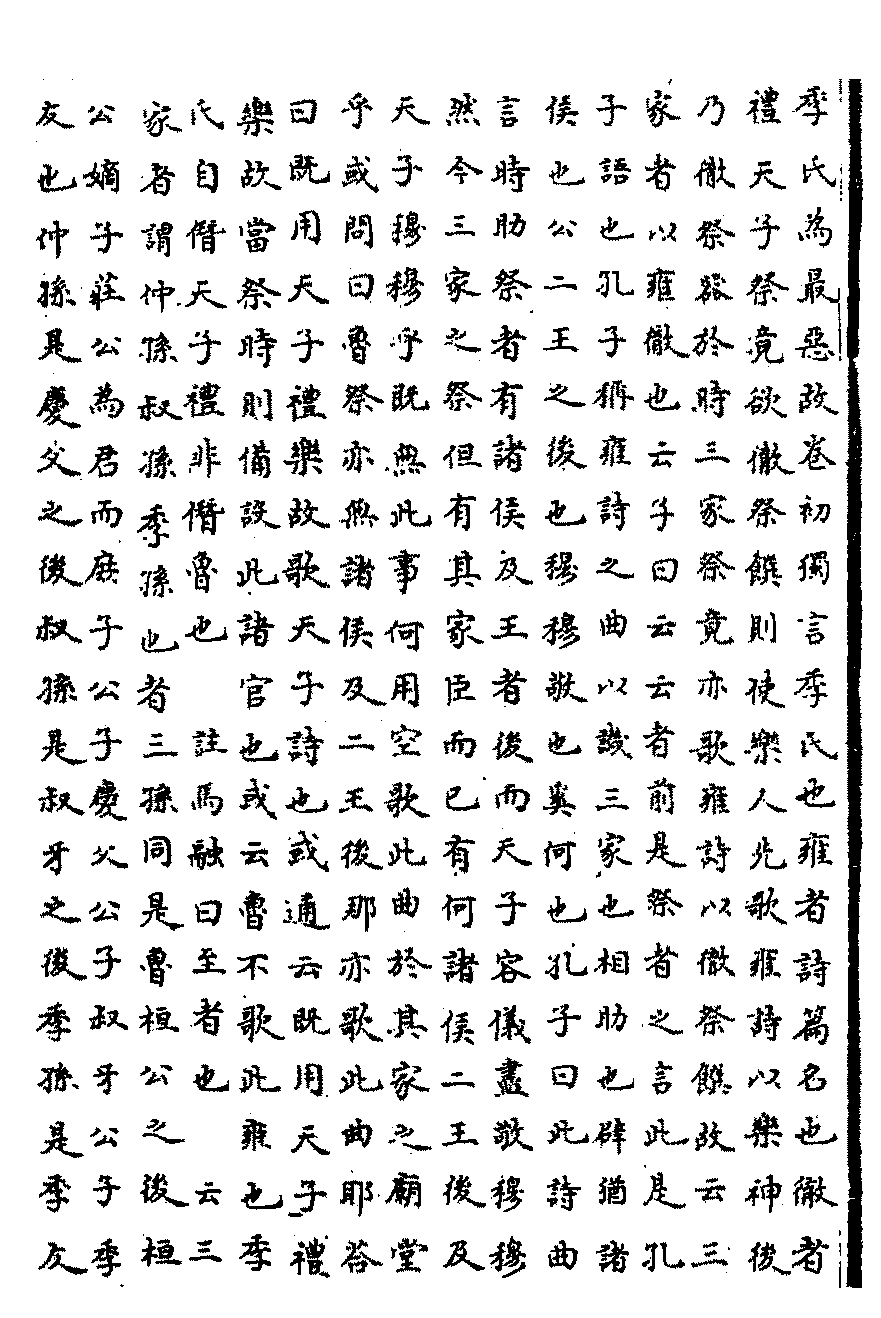 季氏為最惡故卷初獨言季氏也雍者詩篇名也徹者
禮天子祭竟欲徹祭饌則使樂人先歌雍詩以樂神後
乃徹祭器於時三家祭竟亦歌雍詩以徹祭饌故云三
家者以雍徹也云子曰云云者前是祭者之言此是孔
子語也孔子稱雍詩之曲以譏三家也相助也辟猶諸
侯也公二王之後也穆穆敬也奚何也孔子曰此詩曲
言時助祭者有諸侯及王者後而天子容儀盡敬穆穆
然今三家之祭但有其家臣而已有何諸侯二王後及
天子穆穆乎既無此事何用空歌此曲於其家之廟堂
乎或問曰魯祭亦無諸侯及二王後那亦歌此曲耶荅
曰既用天子禮樂故歌天子詩也或通云既用天子禮
樂故當祭時則備設此諸官也或云魯不歌此雍也季
氏自僭天子禮非僭魯也　註馬融曰至者也　云三
家者謂仲孫叔孫季孫也者三孫同是魯桓公之後桓
公嫡子莊公為君而庶子公子慶父公子叔牙公子季
友也仲孫是慶父之後叔孫是叔牙之後季孫是季友